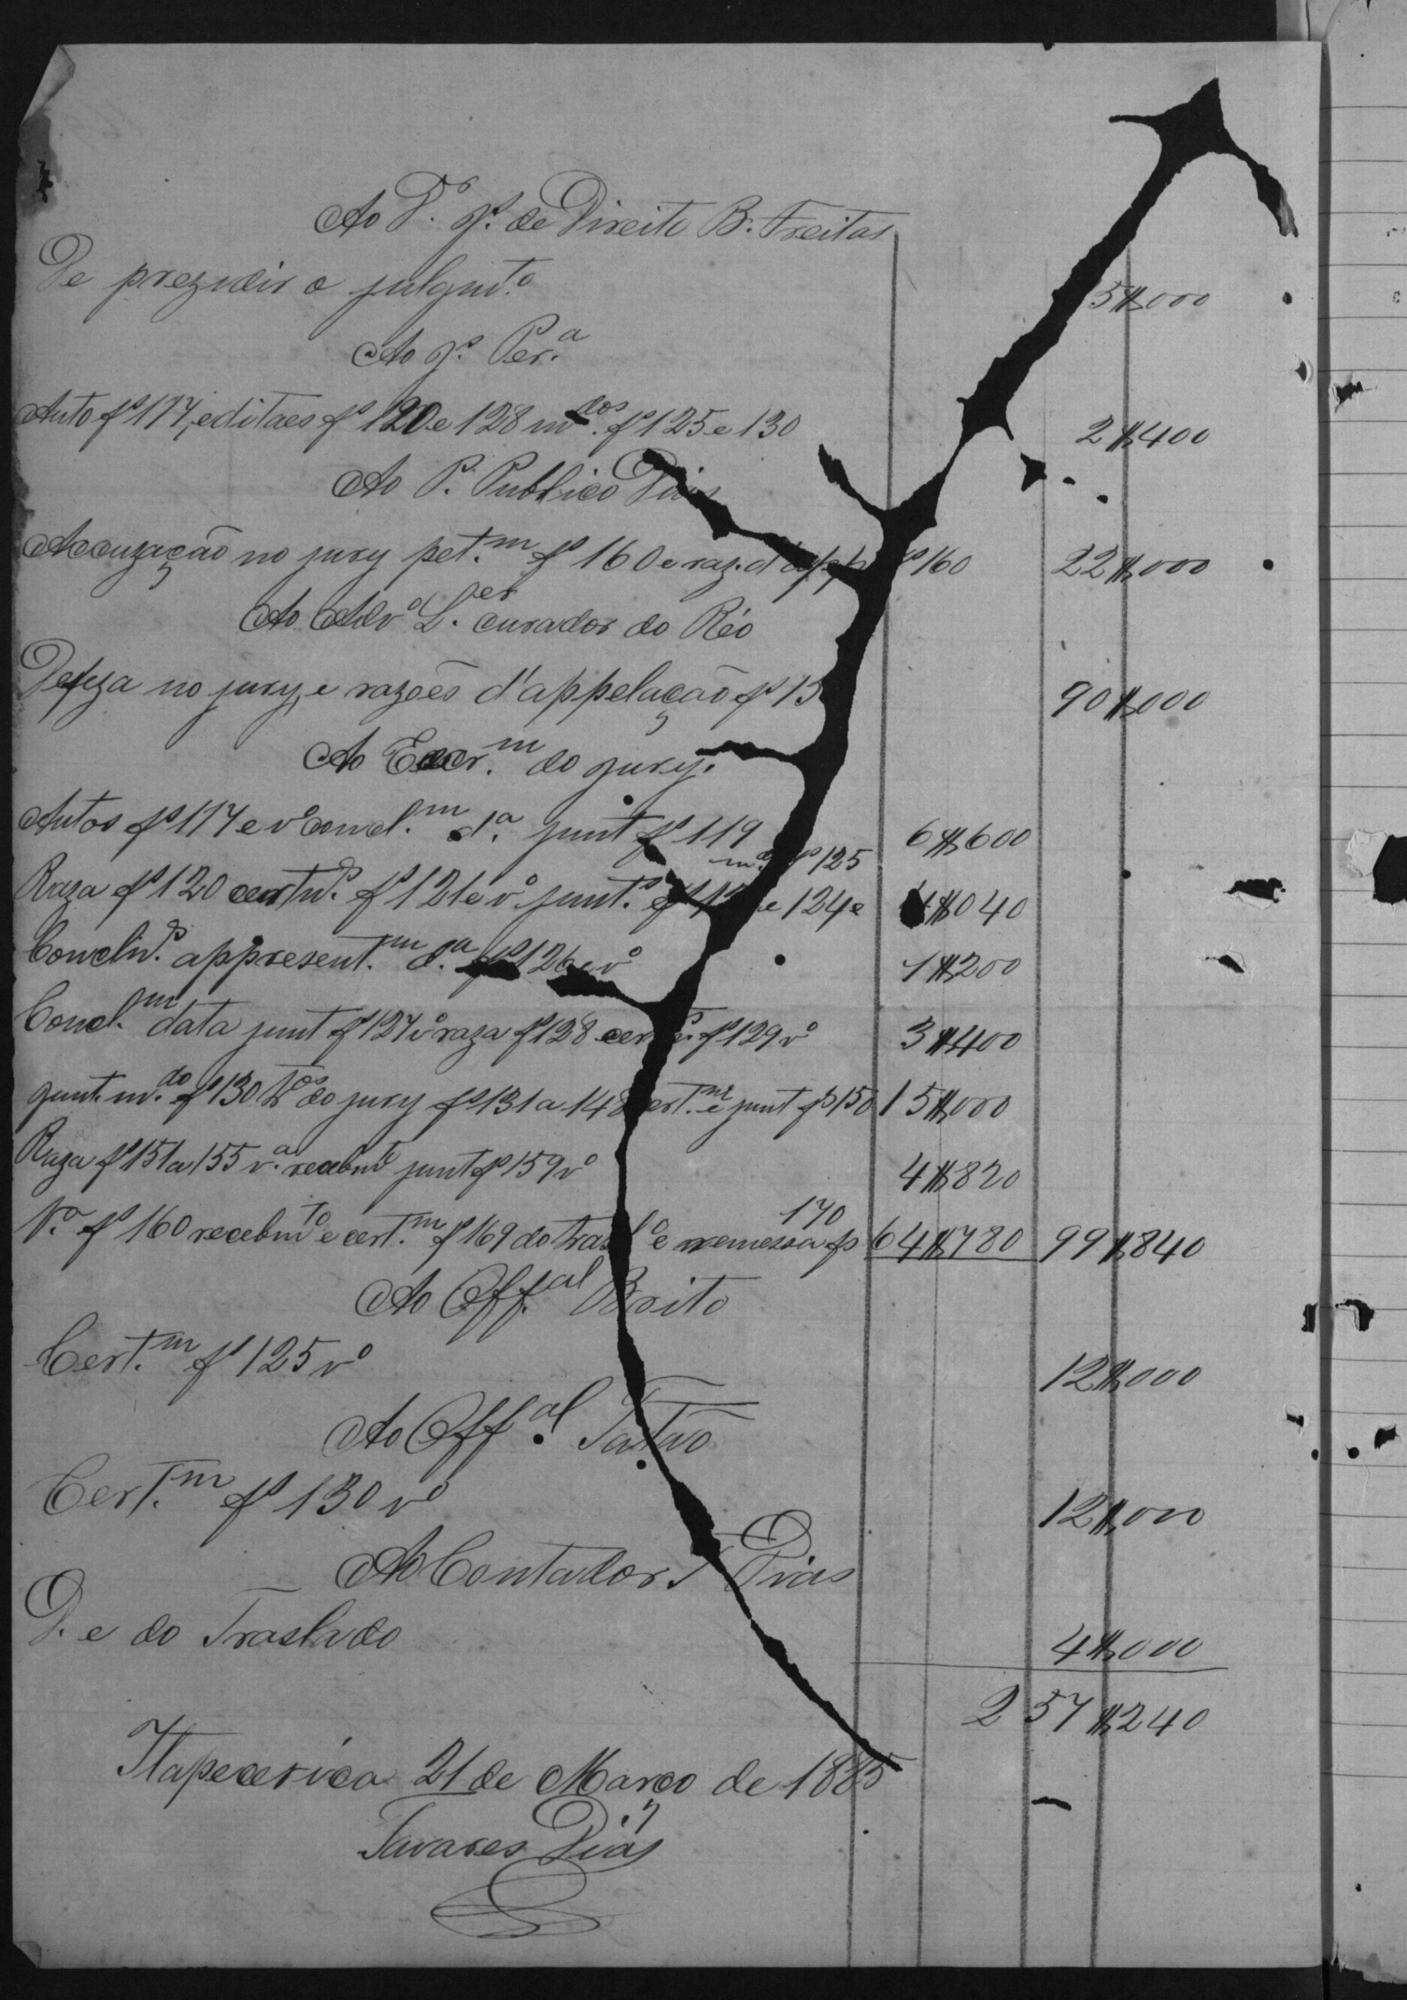 Ao Dr. J.º de Direito B. Freitas
De prezidir o julgmt.º 5$000
Ao J.º Per.ª
Auto fs 117, editaes fs 120 e 128 m.dos fs 125 e 130 2$400
Ao P. Publico Dias
Accuzação no jury pet.m fs 160 e raz. d'app fs 160 22$000
Ao Adv.º L.er curador do Réo
Defeza no jury, e razões d'appelação fs 15 90$000
Ao Escr.m do jury.
Autos fs 117 e vº concl.m d.ª junt fs 119 6$600
m.do fs 125
Raza fs 120 fs 121 e vº junt.s e 124 e 4$040
Concluz. appresent.m d.ª fs 126 e vº 1$200
Concl.m data junt fs 127 vº raza fs 128 fs 129 vº 3$400
Junt. m.do fs 130 do jury fs 131 a 148 cert.m e junt fs 150 15$000
Raza fs 151 a 155 v.ª recebmt junt fs 159 vº 4$820
170
V.ª fs 160 recebmto e cert.m fs 169 do trasl.º e remessa fs 64$780 99$840
Ao Off.al Brito
Cert.m fs 125 vº 12$000
Ao Off.al
Cert.m fs 130 vº 12$000
Ao Contador T Dias
D. e do Traslado 4$000
257$240
Itapecerica 21 de Março de 1885
Tavares Dias